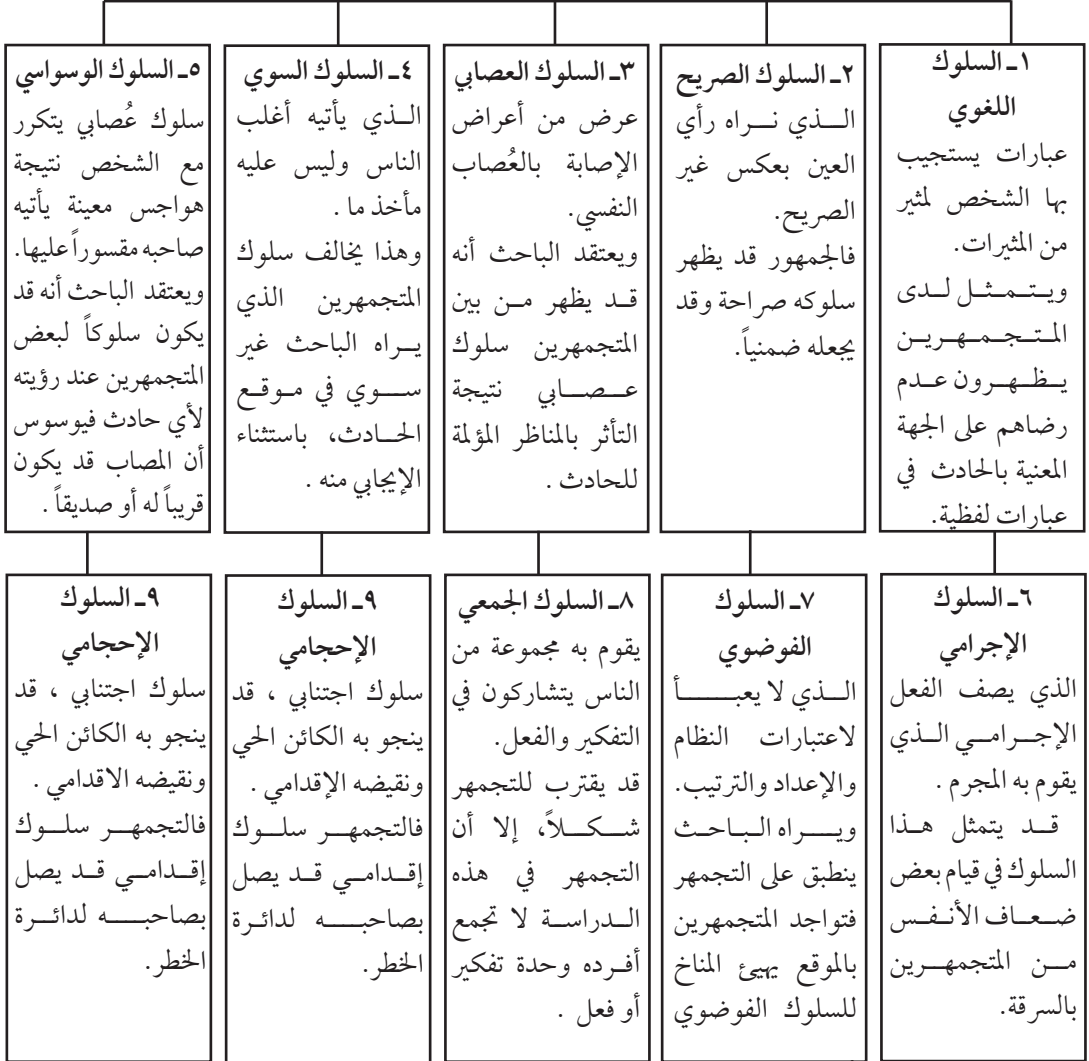 ١ـ السلوك
اللغوي
عبارات يستجيب
بها الشخص لمثير
من المثيرات.
ويتمثل لدى
المتجمهرين
يظهرون عدم
رضاهم على الجهة
المعنية بالحادث في
عبارات لفظية.
٢ـ السلوك الصريح
الذي نراه رأي
العين بعكس غير
الصريح.
فالجمهور قد يظهر
سلوكه صراحة وقد
يجعله ضمنياً.
٣ـ السلوك العصابي
عرض من أعراض
الإصابة بالعُصاب
النفسي.
ويعتقد الباحث أنه
قد يظهر من بين
المتجمهرين سلوك
عصابي نتيجة
التأثر بالمناظر المؤلمة
للحادث .
٤ـ السلوك السوي
الذي يأتيه أغلب
الناس وليس عليه
مأخذ ما .
وهذا يخالف سلوك
المتجمهرين الذي
يراه الباحث غير
سوي في موقع
الحادث، باستثناء
الإيجابي منه .
٥ـ السلوك الوسواسي
سلوك عُصابي يتكرر
مع الشخص نتيجة
هواجس معينة يأتيه
صاحبه مقسوراً عليها.
ويعتقد الباحث أنه قد
يكون سلوكاً لبعض
المتجمهرين عند رؤيته
لأي حادث فيوسوس
أن المصاب قد يكون
قريباً له أو صديقاً .
٦ـ السلوك
الإجرامي
الذي يصف الفعل
الإجرامي الذي
يقوم به المجرم .
قد يتمثل هذا
السلوك في قيام بعض
ضعاف الأنفس
من المتجمهرين
بالسرقة.
٧ـ السلوك
الفوضوي
الذي لا يعبأ
لاعتبارات النظام
والإعداد والترتيب.
ويراه الباحث
ينطبق على التجمهر
فتواجد المتجمهرين
بالموقع يهيئ المناخ
للسلوك الفوضوي
٨ـ السلوك الجمعي
يقوم به مجموعة من
الناس يتشاركون في
التفكير والفعل.
قد يقترب للتجمهر
شكلاً، إلا أن
التجمهر في هذه
الدراسة لا تجمع
أفرده وحدة تفكير
أو فعل .
٩ـ السلوك
الإحجامي
سلوك اجتنابي ، قد
ينجو به الكائن الحي
ونقيضه الإقدامي .
فالتجمهر سلوك
إقدامي قد يصل
بصاحبه لدائرة
الخطر.
٩ـ السلوك
الإحجامي
سلوك اجتنابي ، قد
ينجو به الكائن الحي
ونقيضه الاقدامي .
فالتجمهر سلوك
إقدامي قد يصل
بصاحبه لدائرة
الخطر.